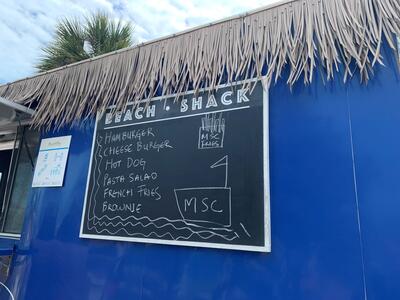 BEACH • SHACK
HAMBURGER
CHEESE BURGER
HOT DOG
PASTA SALAD
FRENCH FRIES
BROWNIE
MSC
FRIES
MSC